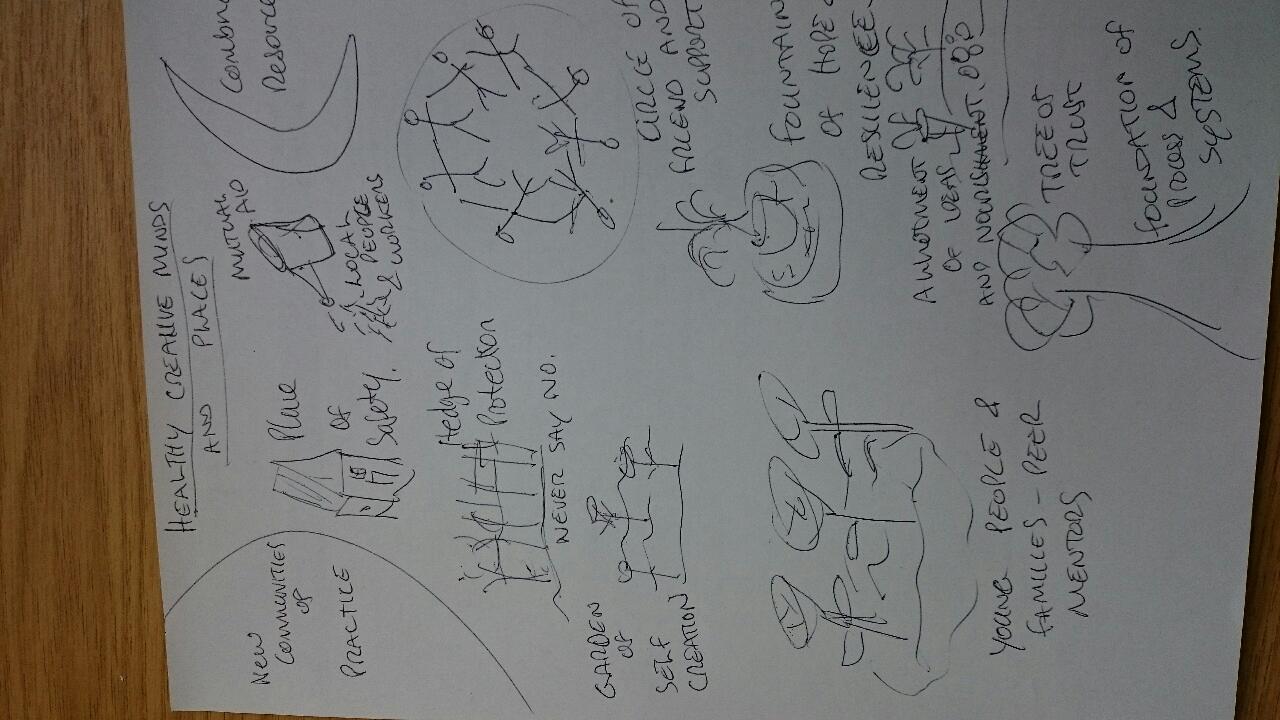 HEALTHY CREATIVE MINDS
AND PLACES
New
Communities
of
PRACTICE
Place
of
Safety.
MUTUAL
AID
LOCAL
PEOPLE
& WORKERS
Resource
Hedge of
Protection
NEVER SAY NO.
CIRCLE OF
FRIEND AND
SUPPORT
GARDEN
OF
SELF
CREATION
FOUNTAIN
OF HOPE
RESILIENCE
OF IDEAS
AND NOURISHMENT.
TREE OF
TRUST
FOUNDATION of
PROCESS &
SYSTEMS.
YOUNG PEOPLE &
FAMILIES - PEER
MENTORS